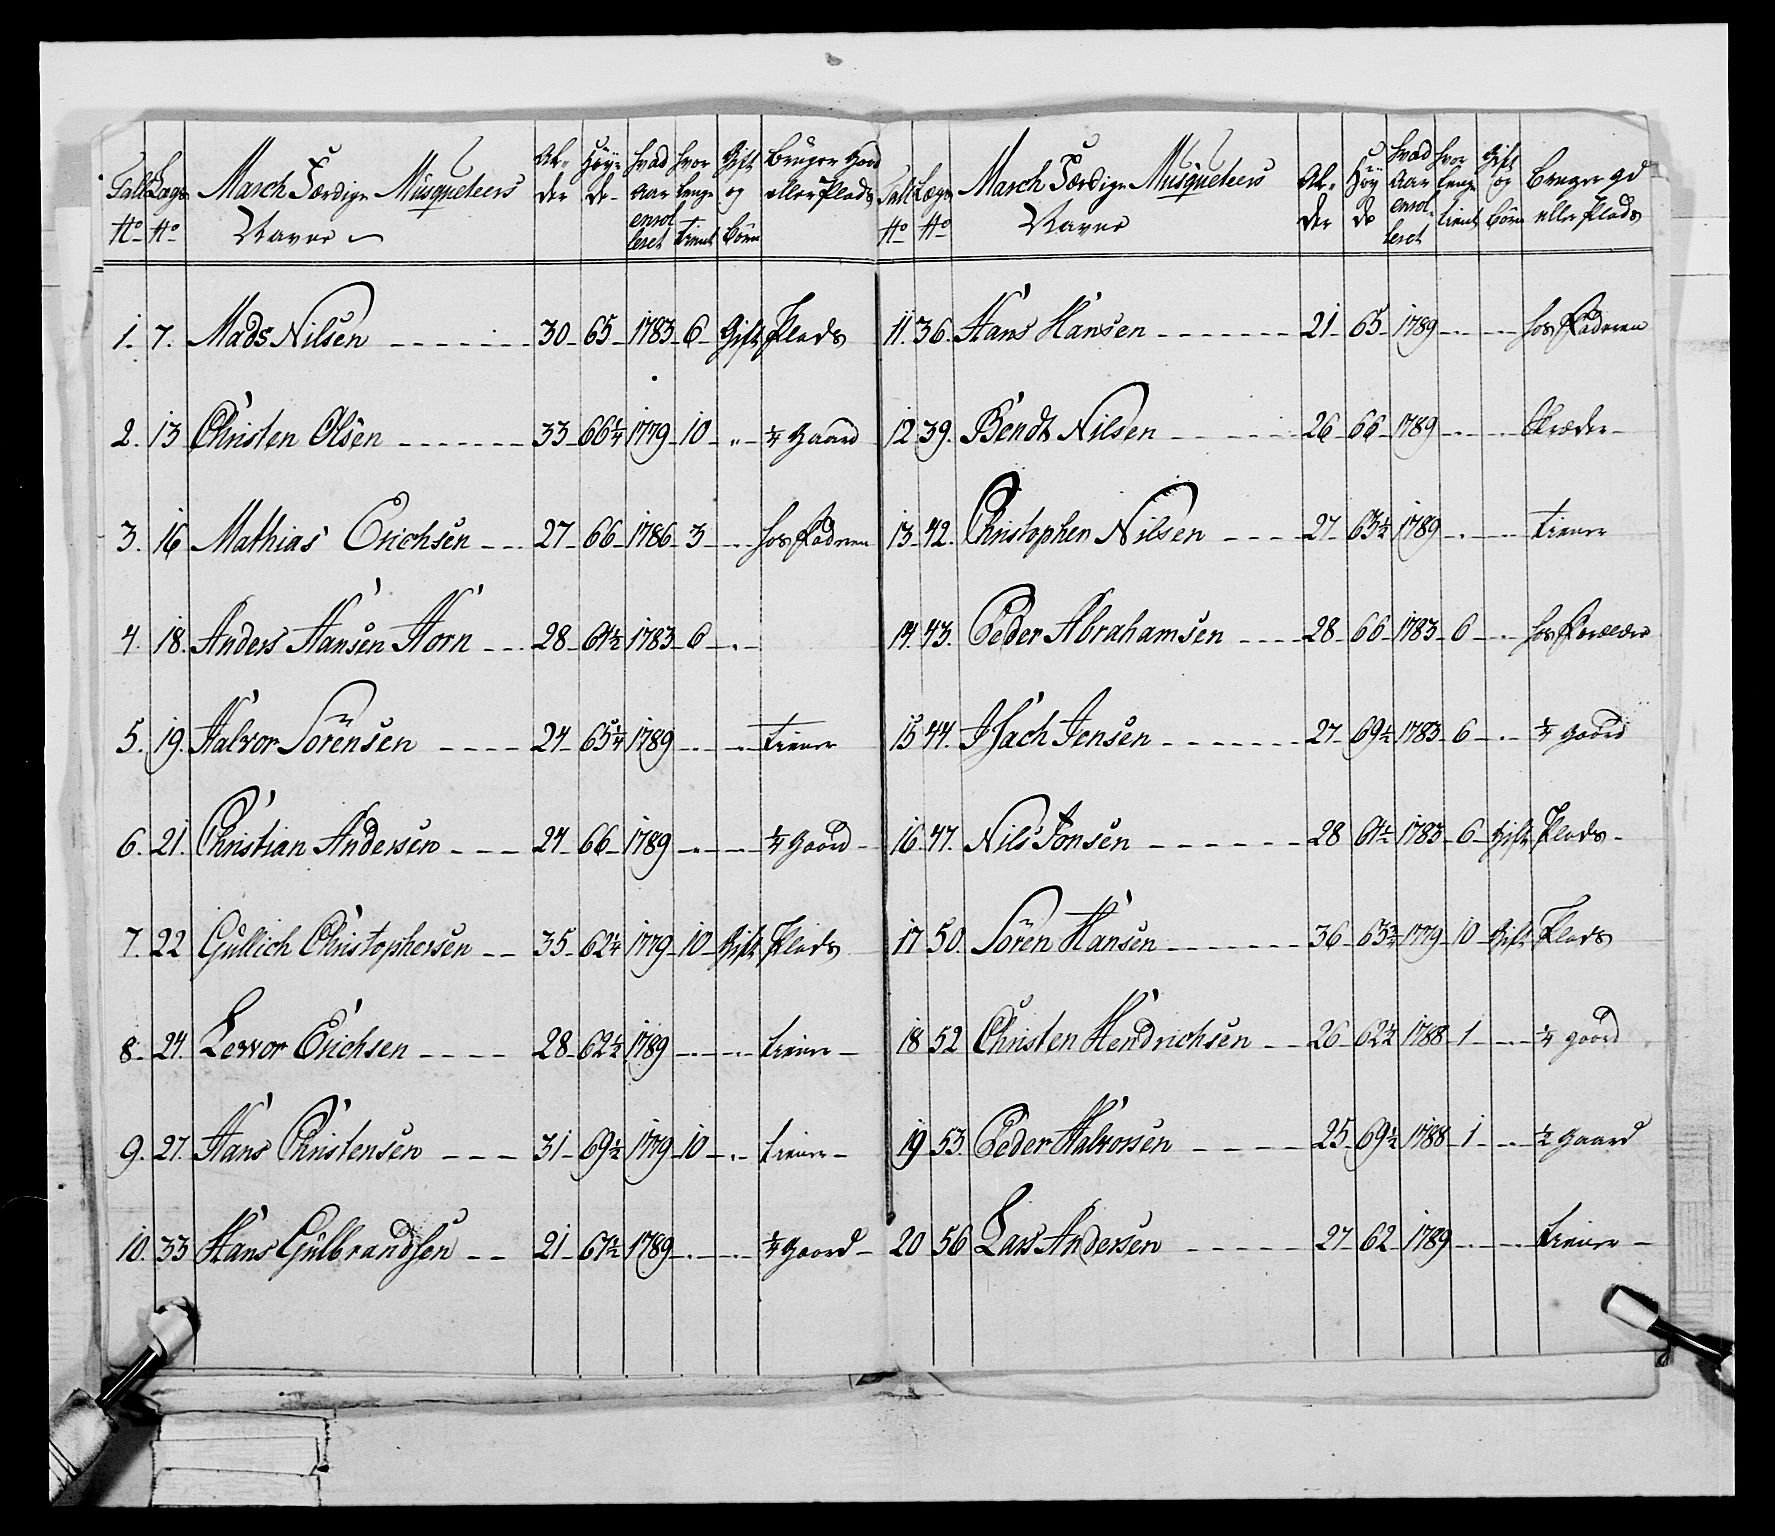 Tall Lægs March Færdige Musqueteers Al- Höy- hvad hvor Gift Bruger Gaard
No No Navne der de aar længe og eller Plads
enrol- tient Börn
leret
1. 7. Mads Nilsen 30 65 1783 6 Gift Plads
2. 13 Christen Olsen 33 66¼ 1779 10 „ ¼ Gaard
3. 16 Mathias Erichsen 27 66 1786 3 hos Faderen
4. 18. Anders Hansen Horn 28 61½ 1783 6
5. 19. Halvor Sörensen 24 65¼ 1789 tiener
6. 21. Christian Andersen 24 66 1789 ¼ Gaard
7. 22 Gullich Christophersen 35 62¼ 1779 10 Gift Plads
8. 24. Levvor Erichsen 28 62½ 1789 tiener
9. 27. Hans Christensen 31 69½ 1779 10 tiener
10. 33 Hans Gulbrandsen 21 67½ 1789 ¼ Gaard
Tall Lægs March Færdige Musqueteers Al- Höy hvad hvor Gift Bruger gd
No No Navne der de Aar længe og eller Plads
enrol- tient Börn
leret
11. 36. Hans Hansen 21 65 1789 hos Faderen
12 39. Bendt Nilsen 26 66 1789 Skræder
13 42. Christopher Nilsen 27 63½ 1789 tiener
14. 43. Peder Abrahamsen 28 66 1783 6 hos Forældre
15 44. Isach Jensen 27 69½ 1783 6 ¼ gaard
16. 47. Nils Jonsen 28 61½ 1783 6 Gift Plads
17 50. Sören Hansen 36 63¾ 1779 10 Gift Plads
18 52 Christen Hendrichsen 26 62½ 1788 1 ¼ gaard
19 53. Peder Halvorsen 25 69½ 1788 1 ½ Gaard
20 56 Lars Andersen 27 62 1789 tiener